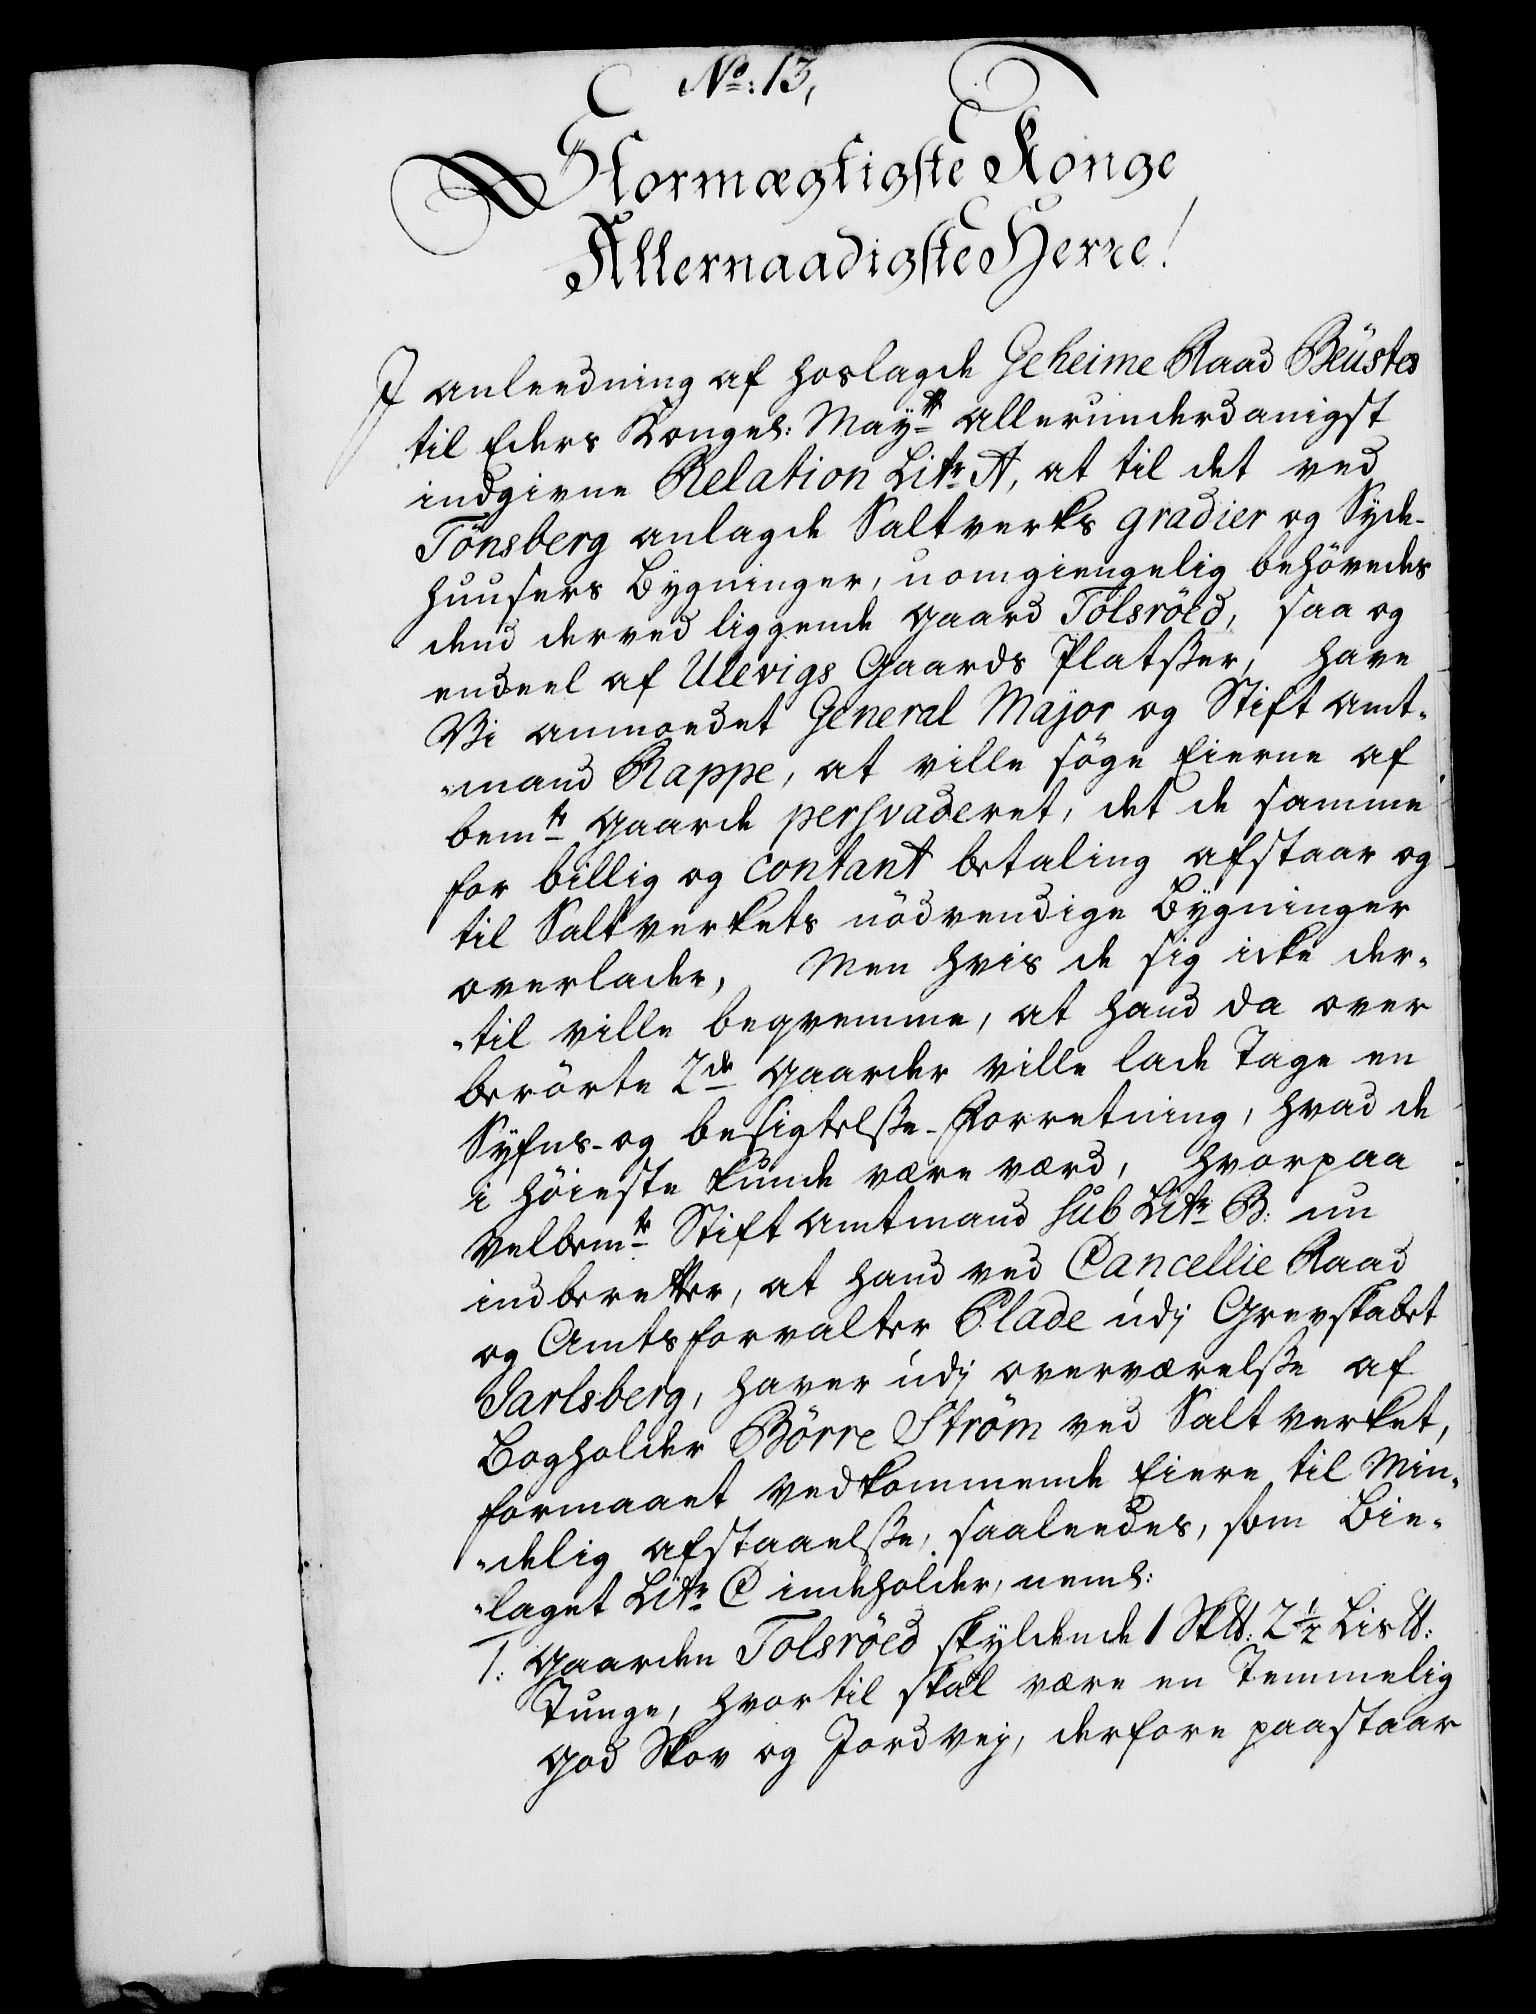 No: 13,
Stormægtigste Konge
Allernaadigste Herre!
I anleedning af hoslagde Geheime Raad Beüstes
til Eders Kongel: Mayts allerunderdanigst
indgivne Relation Litr A, at til det ved
Tönsberg anlagde Saltverks gradier og Syde-
huusers Bygninger, uomgiengelig behövedes
dend derved liggende gaard Tolsröed, saa og
endeel af Ulevigs Gaards Platsser, have
Vi anmodet General Major og Stift amt-
-mand Rappe, at ville söge Eierne af
bemte gaarde persvaderet, det de samme
for billig og contant betaling afstaar og
til Saltverkets nödvendige Bygninger
overlader, Men hvis de sig icke der-
-til ville beqvemme, at hand da over
berörte 2de gaarder ville lade Tage en
Syfns- og besigtelsse-Forretning, hvad de
i höieste kunde være værd, hvorpaa
velbemte Stift amtmand sub Litr B: nu
indberetter, at hand ved Cancellie Raad
og Amtsforvalter Plade udj Grevskabet
Jarlsberg, haver udj overværelsse af
Bogholder Börre Ström ved Saltverket,
formaaet vedkommende Eiere til Min-
-delig afstaaelsse, saaleedes, som Bie-
-laget Litr C indeholder, neml:
1: gaarden Tolsröed skyldende 1 Sk℔: 2½ Lis℔:
Tunge, hvortil skal være en Temmelig
god Skov og Jordvej, derfore paastaar